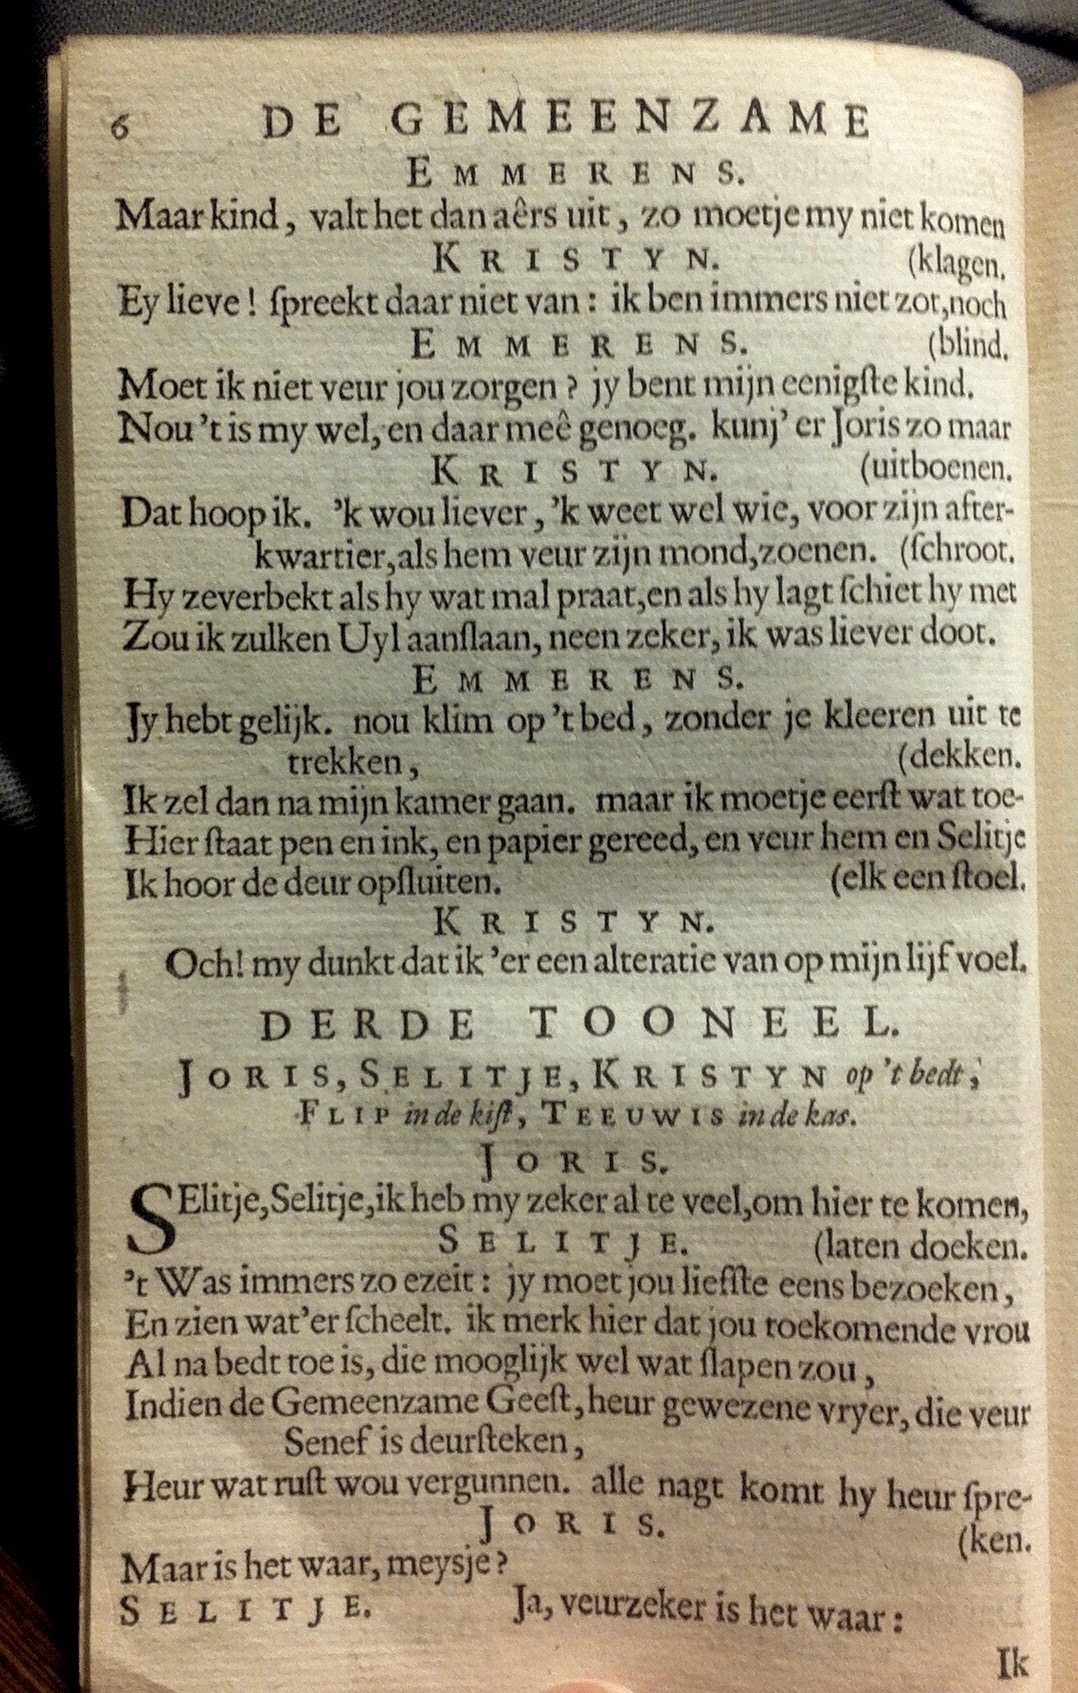 6 DE GEMEENZAME
EMMERENS.
Maar kind, valt het dan aêrs uit, zo moetje my niet komen
KRISTYN. (klagen.
Ey lieve! ſpreekt daar niet van: ik ben immers niet zot, noch
EMMERENS. (blind.
Moet ik niet veur jou zorgen? jy bent mijn eenigſte kind.
Nou 't is my wel, en daar meê genoeg. kunj' er Joris zo maar
KRISTYN. (uitboenen.
Dat hoop ik. 'k wou liever, 'k weet wel wie, voor zijn after-
kwartier, als hem veur zijn mond, zoenen. (ſchroot.
Hy zeverbekt als hy wat mal praat, en als hy lagt ſchiet hy met
Zou ik zulken Uyl aanſlaan, neen zeker, ik was liever doot.
EMMERENS.
Jy hebt gelijk. nou klim op 't bed, zonder je kleeren uit te
trekken, (dekken.
Ik zel dan na mijn kamer gaan. maar ik moetje eerſt wat toe-
Hier ſtaat pen en ink, en papier gereed, en veur hem en Selitje
Ik hoor de deur opſluiten. (elk een ſtoel.
KRISTYN.
Och! my dunkt dat ik 'er een alteratie van op mijn lijf voel.
DERDE TOONEEL.
JORIS, SELITJE, KRISTYN op 't bedt,
FLIP in de kiſt, TEEUWIS in de kas.
JORIS.
SElitje, Selitje, ik heb my zeker al te veel, om hier te komen,
SELITJE. (laten doeken.
't Was immers zo ezeit: jy moet jou liefſte eens bezoeken,
En zien wat 'er ſcheelt. ik merk hier dat jou toekomende vrou
Al na bedt toe is, die mooglijk wel wat ſlapen zou,
Indien de Gemeenzame Geeſt, heur gewezene vryer, die veur
Senef is deurſteken,
Heur wat ruſt wou vergunnen. alle nagt komt hy heur ſpre-
JORIS. (ken.
Maar is het waar, meysje?
SELITJE. Ja, veurzeker is het waar:
Ik